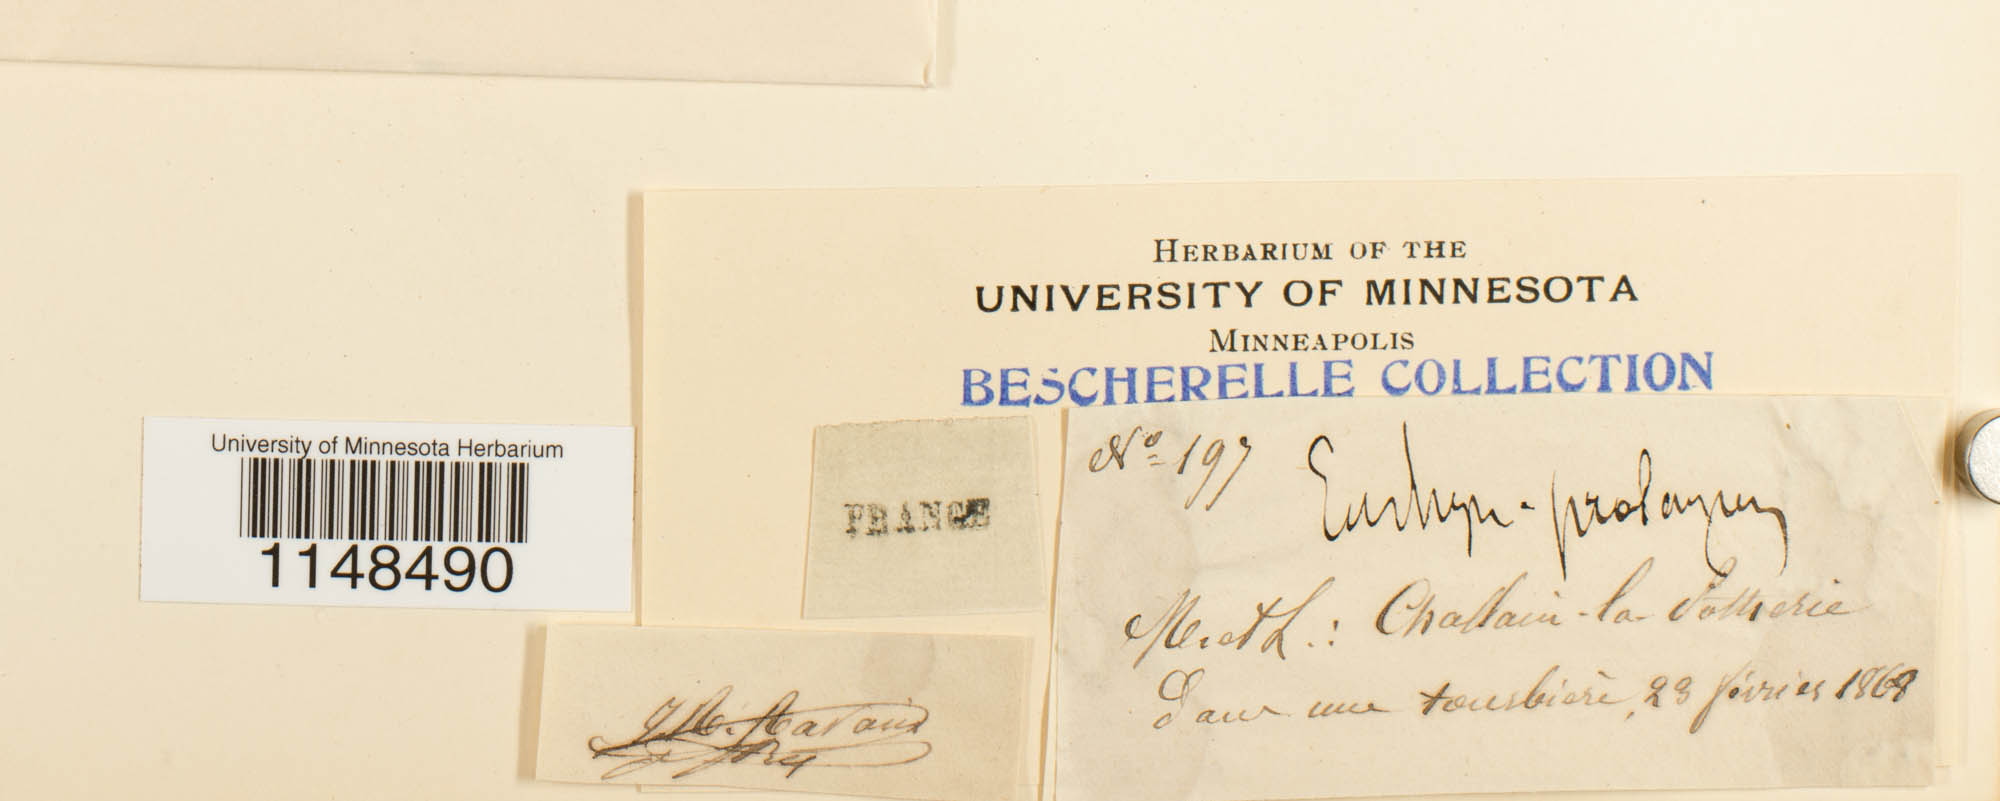 HERBARIUM OF THE
UNIVERSITY OF MINNESOTA
MINNEAPOLIS
BESCHERELLE COLLECTION
University of Minnesota Herbarium
1148490
FRANCE
No 197
Eurhyn. praelongum
M. et L.: Challain-la-Potherie
Dans une tourbière, 23 février 1868